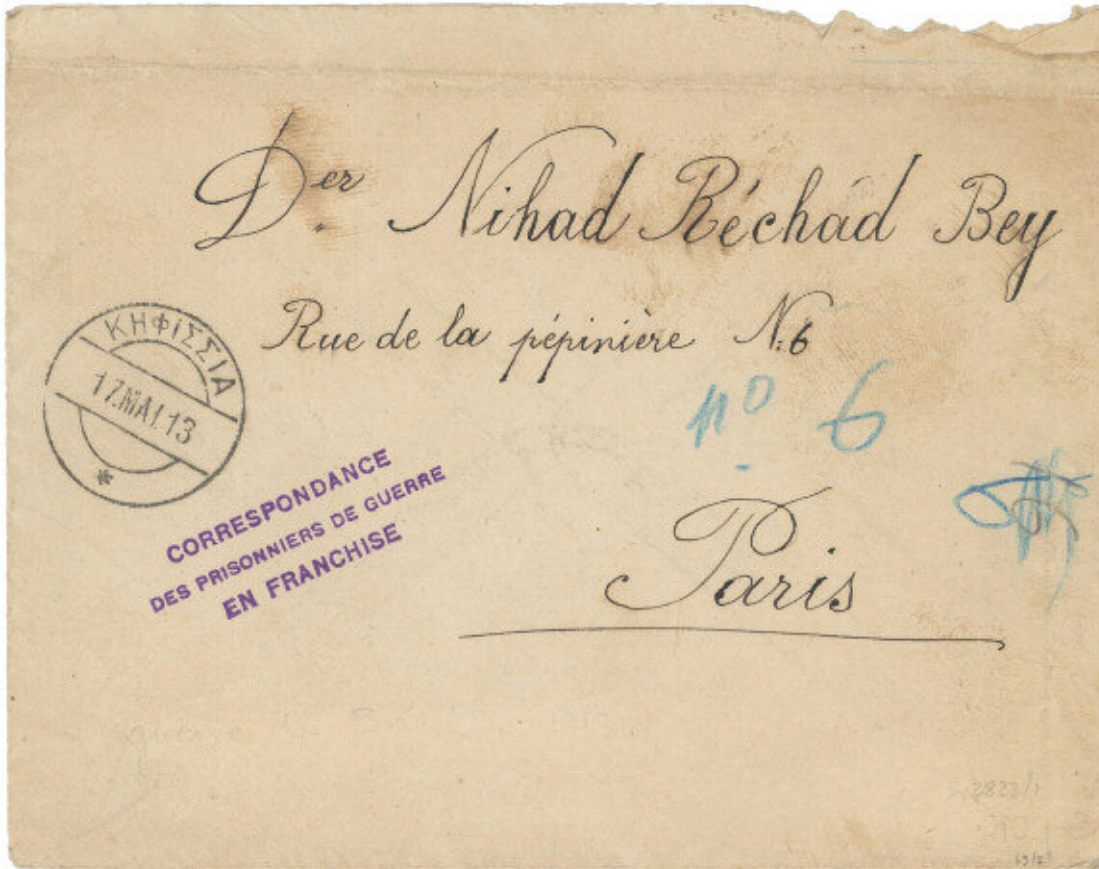 Der. Nihad Réchad Bey
Rue de la pépinière N.6
ΚΗΦΙΣΣΙΑ
17.MAI.13
nº 6
CORRESPONDANCE
DES PRISONNIERS DE GUERRE
EN FRANCHISE
Paris
2823/1